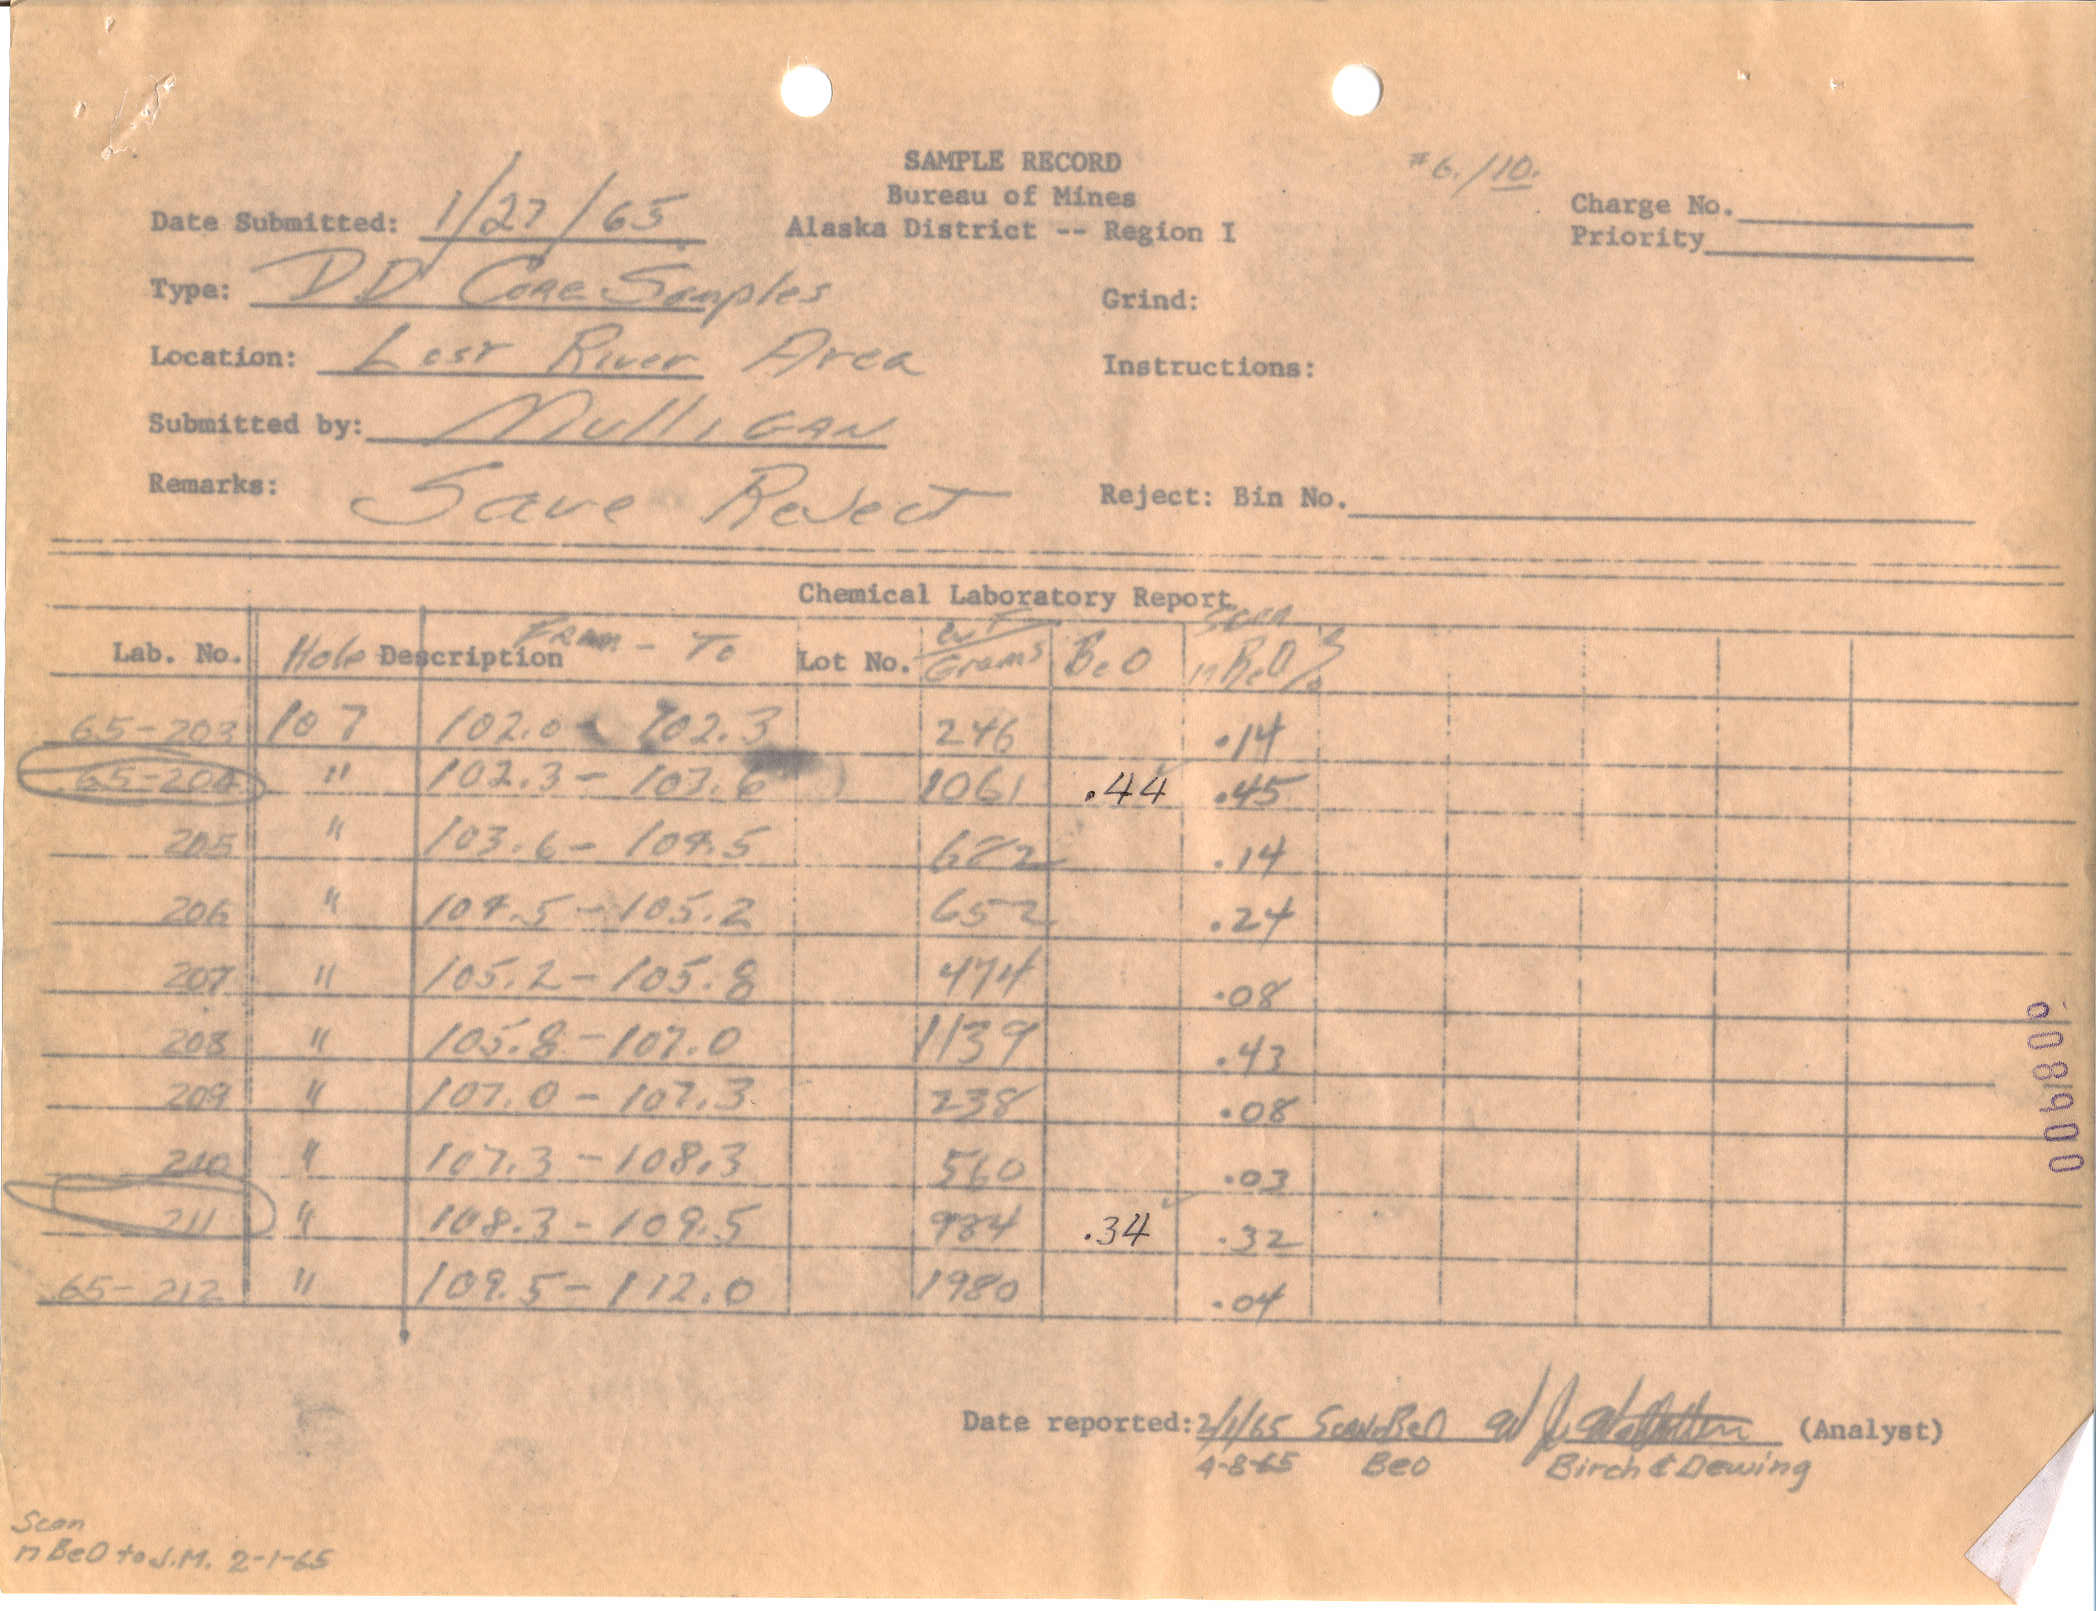 SAMPLE RECORD
#6./10.
Bureau of Mines
Alaska District -- Region I
Charge No.
Priority
Date Submitted: 1/27/65
Type: DD Core Samples
Grind:
Location: Lost River Area
Instructions:
Submitted by: Mulligan
Remarks: Save Reject
Reject: Bin No.
Chemical Laboratory Report
Lab. No. Hole Description From - To Lot No. WT Grams BeO Scan n BeO %
65-203 107 102.0 - 102.3 246 .14
65-204 " 102.3 - 103.6 1061 .44 .45
205 " 103.6 - 104.5 682 .14
206 " 104.5 - 105.2 652 .24
207 " 105.2 - 105.8 474 .08
208 " 105.8 - 107.0 1139 .43
209 " 107.0 - 107.3 238 .08
210 " 107.3 - 108.3 560 .03
211 " 108.3 - 109.5 984 .34 .32
65-212 " 109.5 - 112.0 1980 .04
Date reported: 2/1/65 Scan n BeO (Analyst)
4-8-65 BeO Birch & Dewing
Scan
n BeO to J.M. 2-1-65